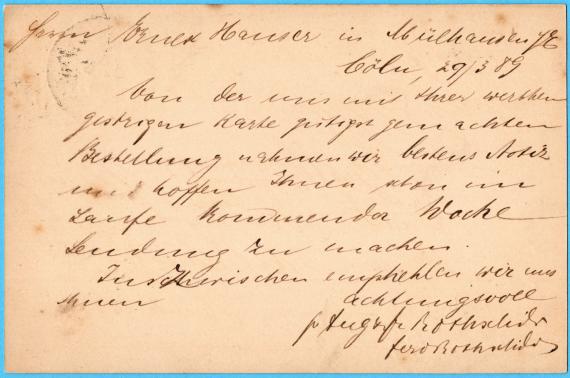 Herrn Ernest Hanser in Mülhausen i/E
Cöln, 29/3 89
Von der uns mit Ihrer werthen
gestrigen Karte gütigst gemachten
Bestellung nahmen wir bestens Notiz
und hoffen Ihnen schon im
Laufe kommender Woche
Sendung zu machen.
Inzwischen empfehlen wir uns
Ihnen achtungsvoll
Rothschild
Rothschild